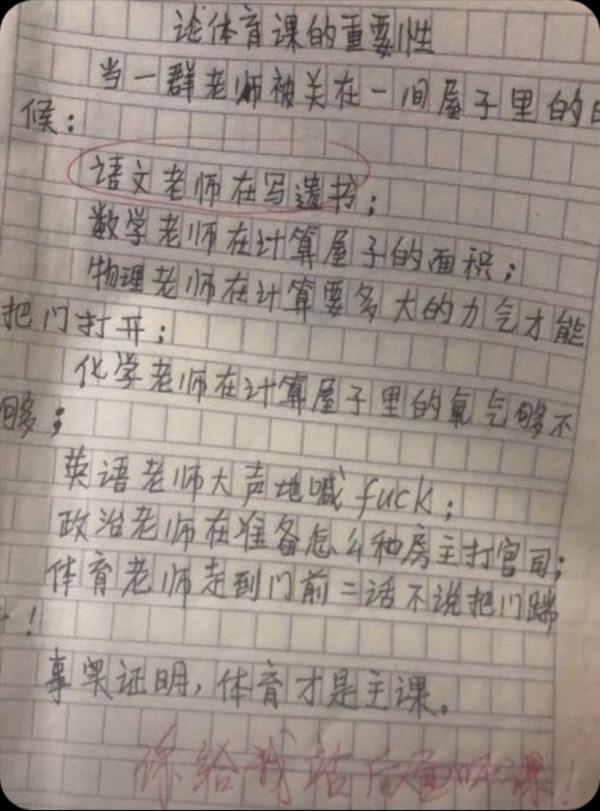 论体育课的重要性
当一群老师被关在一间屋子里的时
候：
语文老师在写遗书；
数学老师在计算屋子的面积；
物理老师在计算要多大的力气才能
把门打开；
化学老师在计算屋子里的氧气够不
够；
英语老师大声地喊fuck；
政治老师在准备怎么和房主打官司；
体育老师走到门前二话不说把门踹
！
事实证明，体育才是主课。
你给我站后面听课！